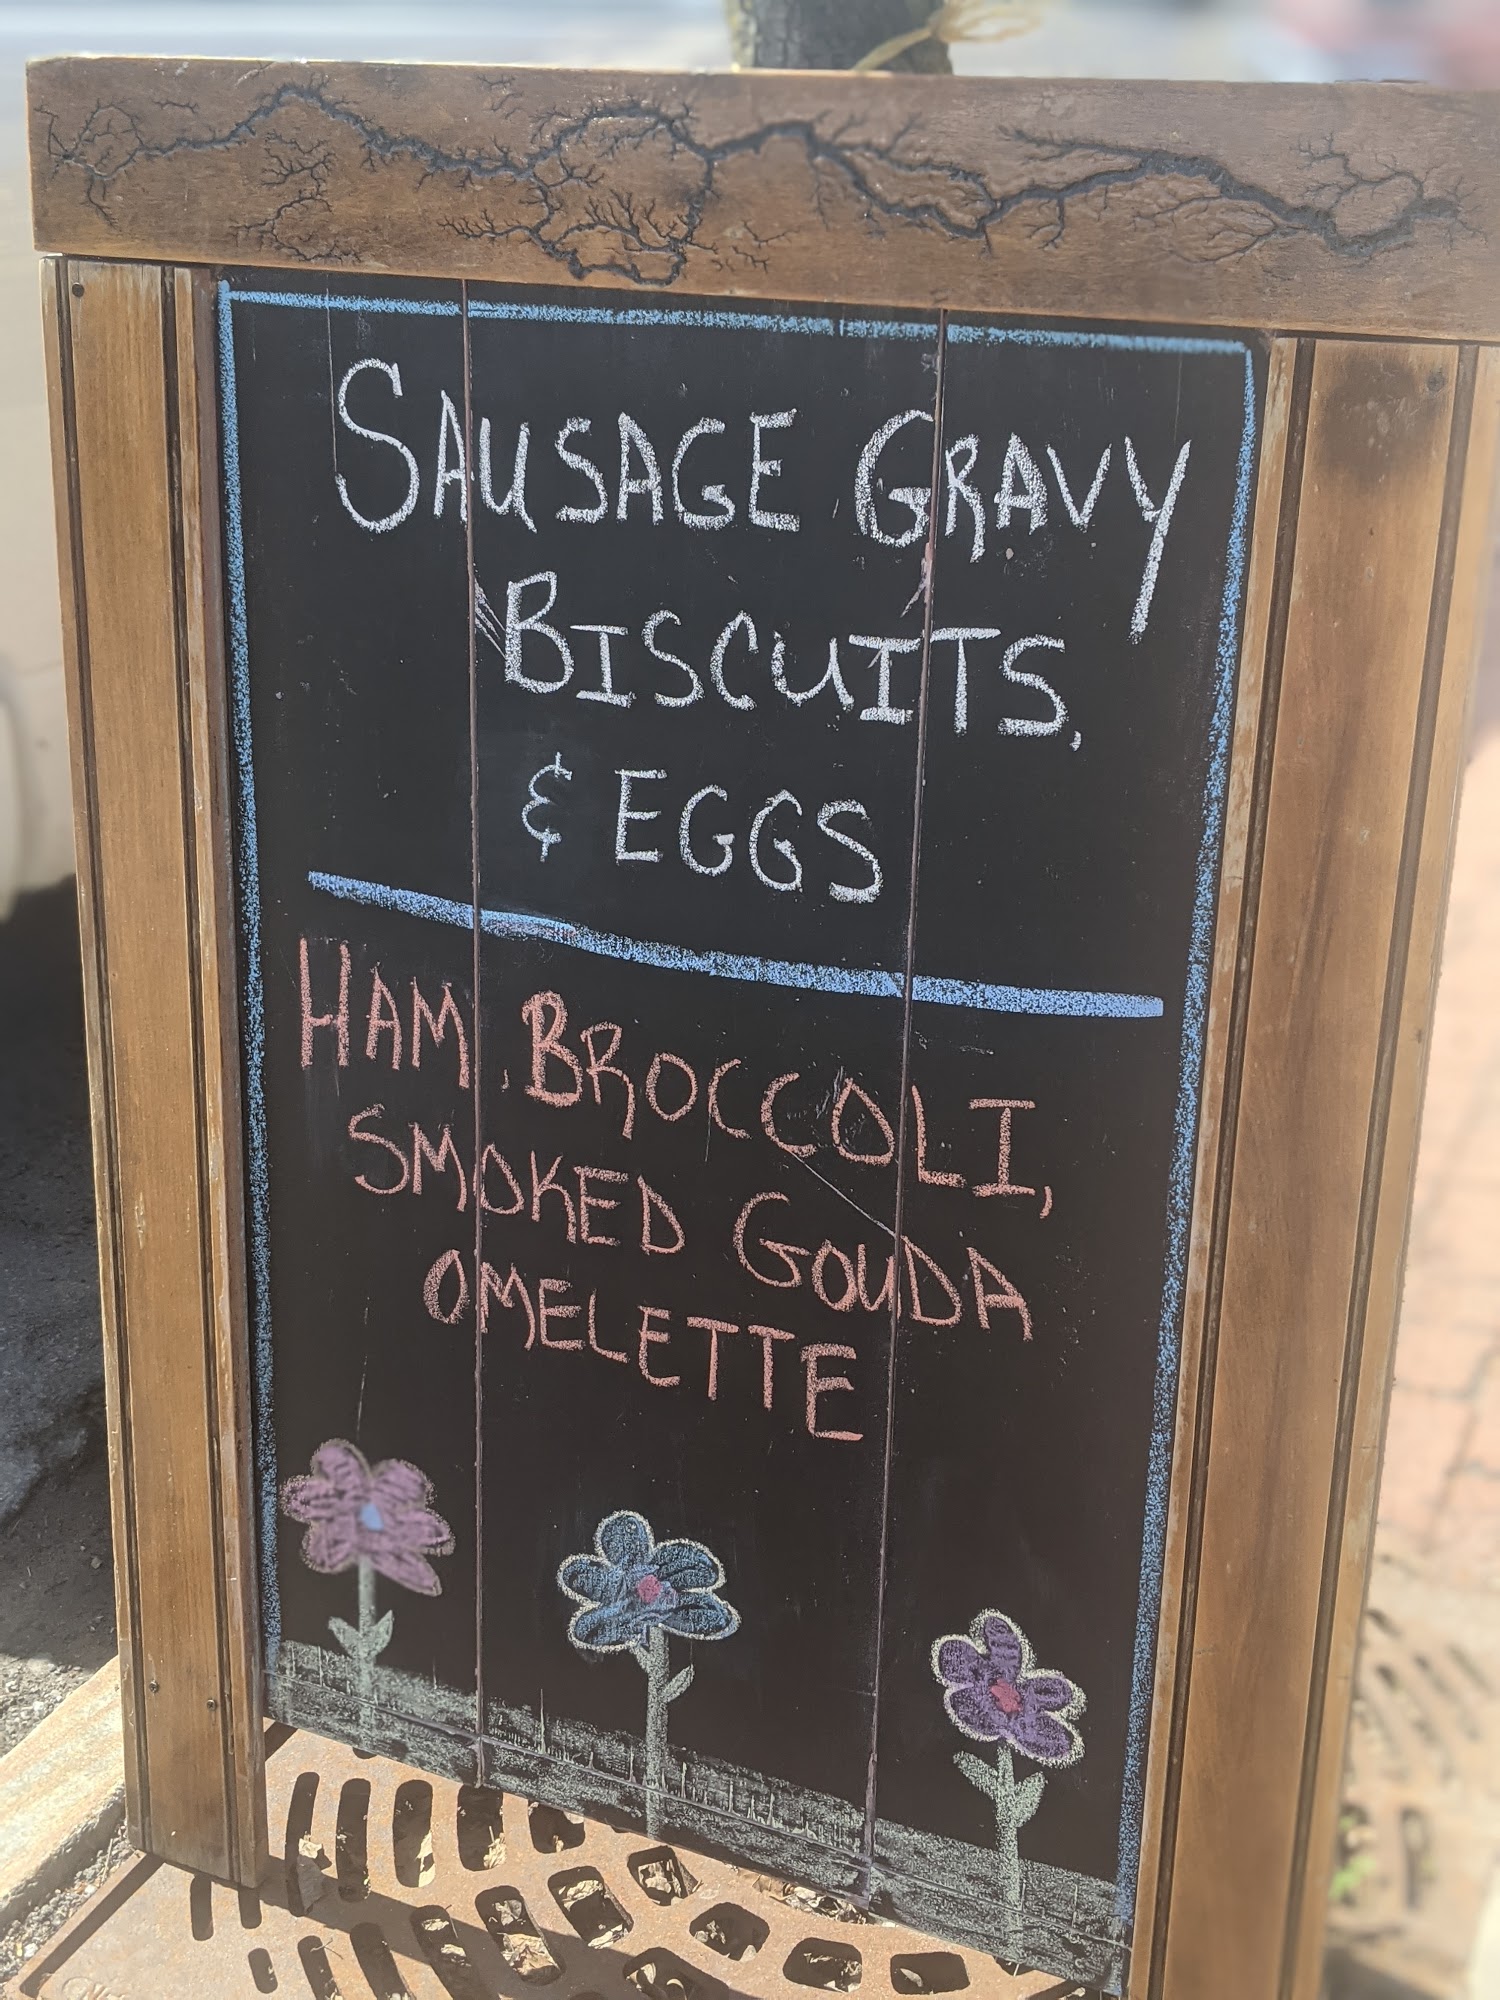 SAUSAGE GRAVY
BISCUITS,
& EGGS
HAM, BROCCOLI,
SMOKED GOUDA
OMELETTE